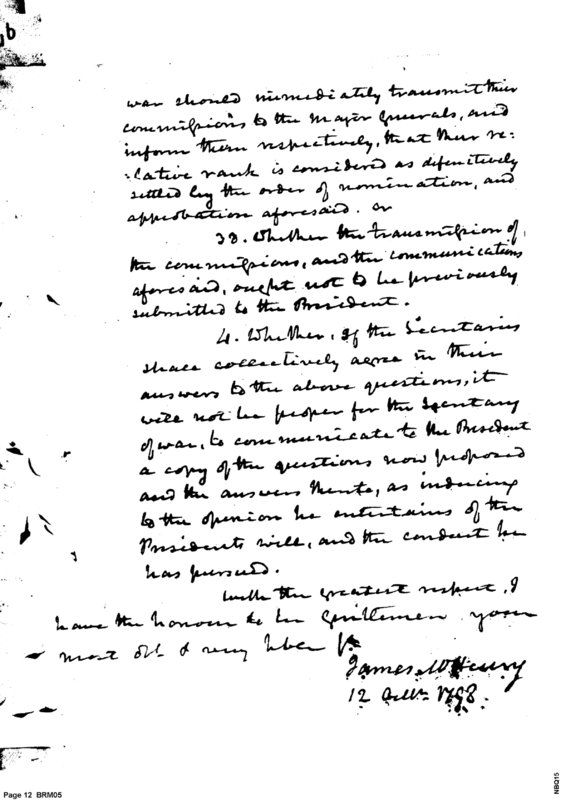 6
war should immediately transmit their
commissions to the Major Generals, and
inform them respectively, that their re=
=lative rank is considered as definitively
settled by the order of nomination, and
approbation aforesaid. or
3d. Whether the transmission of
the commissions, and the communications
aforesaid, ought not to be previously
submitted to the President.
4. Whether, if the Secretaries
shall collectively agree in their
answers to the above questions, it
will not be proper for the Secretary
of war, to communicate to the President
a copy of the questions now proposed
and the answers thereto, as inducing
to the opinion he entertains of the
Presidents will, and the conduct he
has pursued.
with the greatest respect, I
have the honour to be Gentlemen your
most obt. & very hble
James McHenry
12 1798.
Page 12 BRM05
NBQ15